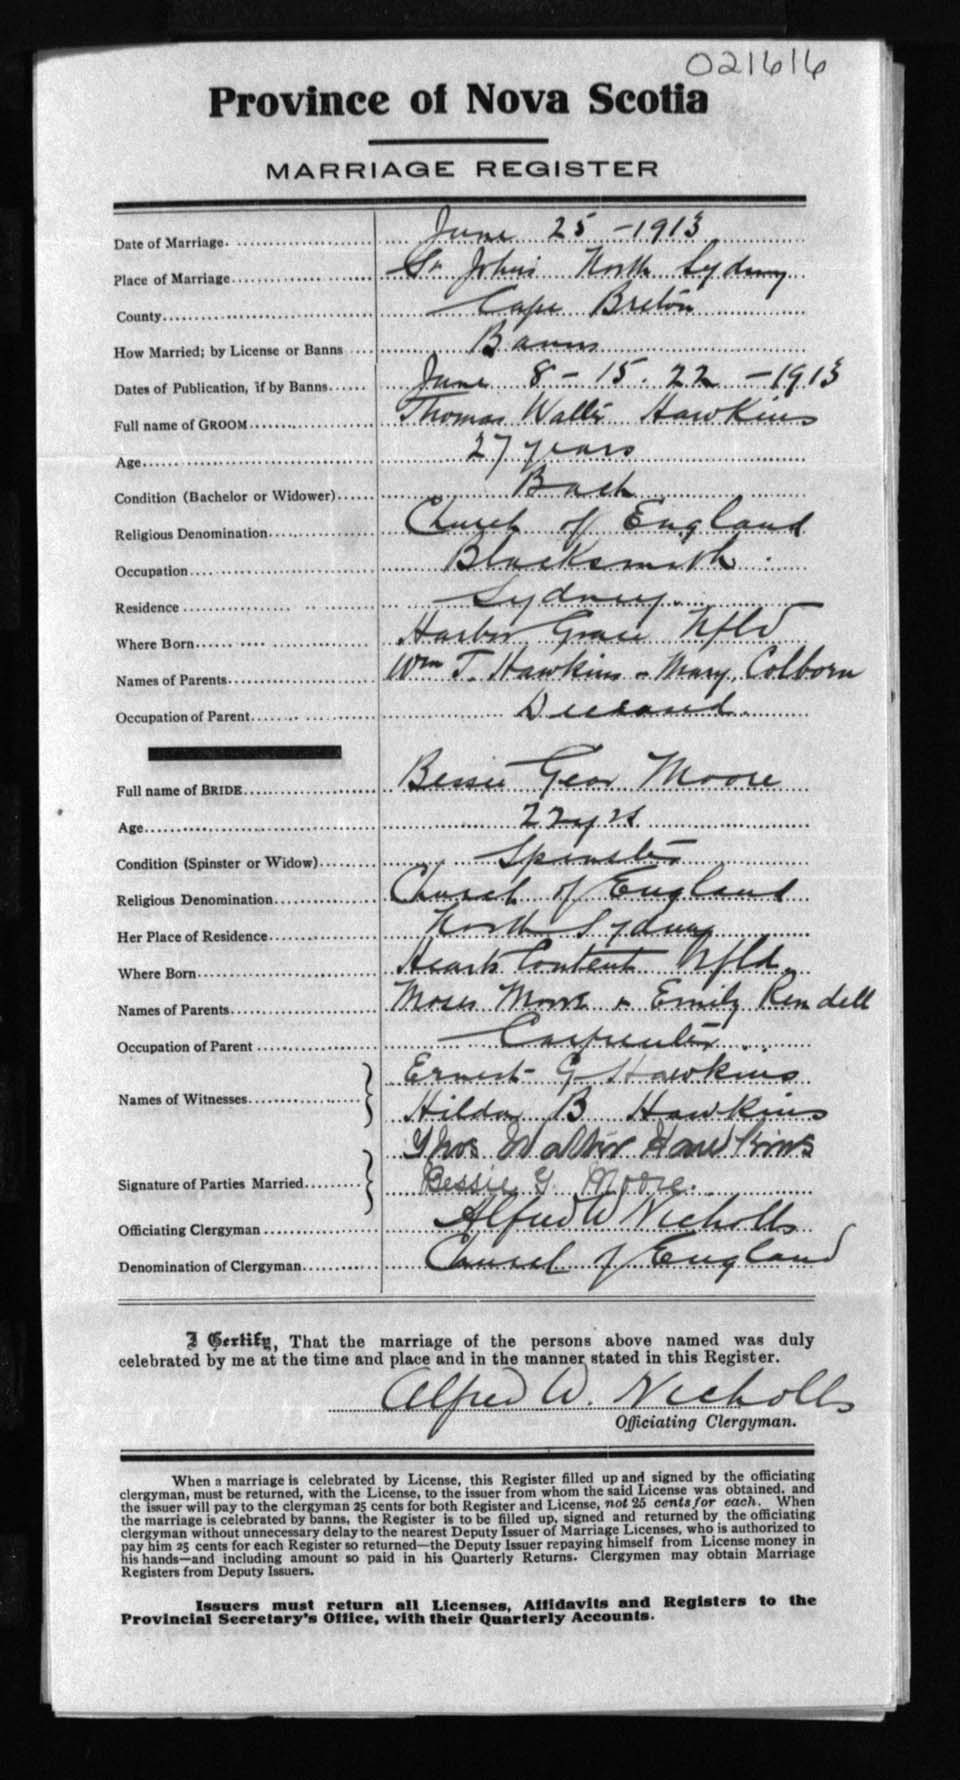 021616
Province of Nova Scotia
MARRIAGE REGISTER
Date of Marriage. June 25 - 1913
Place of Marriage St Johns North Sydney
County Cape Breton
How Married; by License or Banns Banns
Dates of Publication, if by Banns June 8 - 15. 22 - 1913
Full name of GROOM Thomas Walter Hawkins
Age 27 years
Condition (Bachelor or Widower) Bach
Religious Denomination Church of England
Occupation Blacksmith
Residence Sydney
Where Born Harbor Grace Nfld
Names of Parents Wm T. Hawkins - Mary Colborn
Occupation of Parent Deceased
Full name of BRIDE Bessie Gear Moore
Age 22 yrs
Condition (Spinster or Widow) Spinster
Religious Denomination Church of England
Her Place of Residence North Sydney
Where Born Hearts Content Nfld.
Names of Parents Moses Moore & Emily Rendell
Occupation of Parent Carpenter
Names of Witnesses Ernest G Hawkins
Hilda B Hawkins
Signature of Parties Married Thos Walter Hawkins
Bessie G Moore.
Officiating Clergyman Alfred W Nicholls
Denomination of Clergyman Church of England
I Certify, That the marriage of the persons above named was duly
celebrated by me at the time and place and in the manner stated in this Register.
Alfred W. Nicholls
Officiating Clergyman.
When a marriage is celebrated by License, this Register filled up and signed by the officiating
clergyman, must be returned, with the License, to the issuer from whom the said License was obtained, and
the issuer will pay to the clergyman 25 cents for both Register and License, not 25 cents for each. When
the marriage is celebrated by banns, the Register is to be filled up, signed and returned by the officiating
clergyman without unnecessary delay to the nearest Deputy Issuer of Marriage Licenses, who is authorized to
pay him 25 cents for each Register so returned—the Deputy Issuer repaying himself from License money in
his hands—and including amount so paid in his Quarterly Returns. Clergymen may obtain Marriage
Registers from Deputy Issuers.
Issuers must return all Licenses, Affidavits and Registers to the
Provincial Secretary's Office, with their Quarterly Accounts.